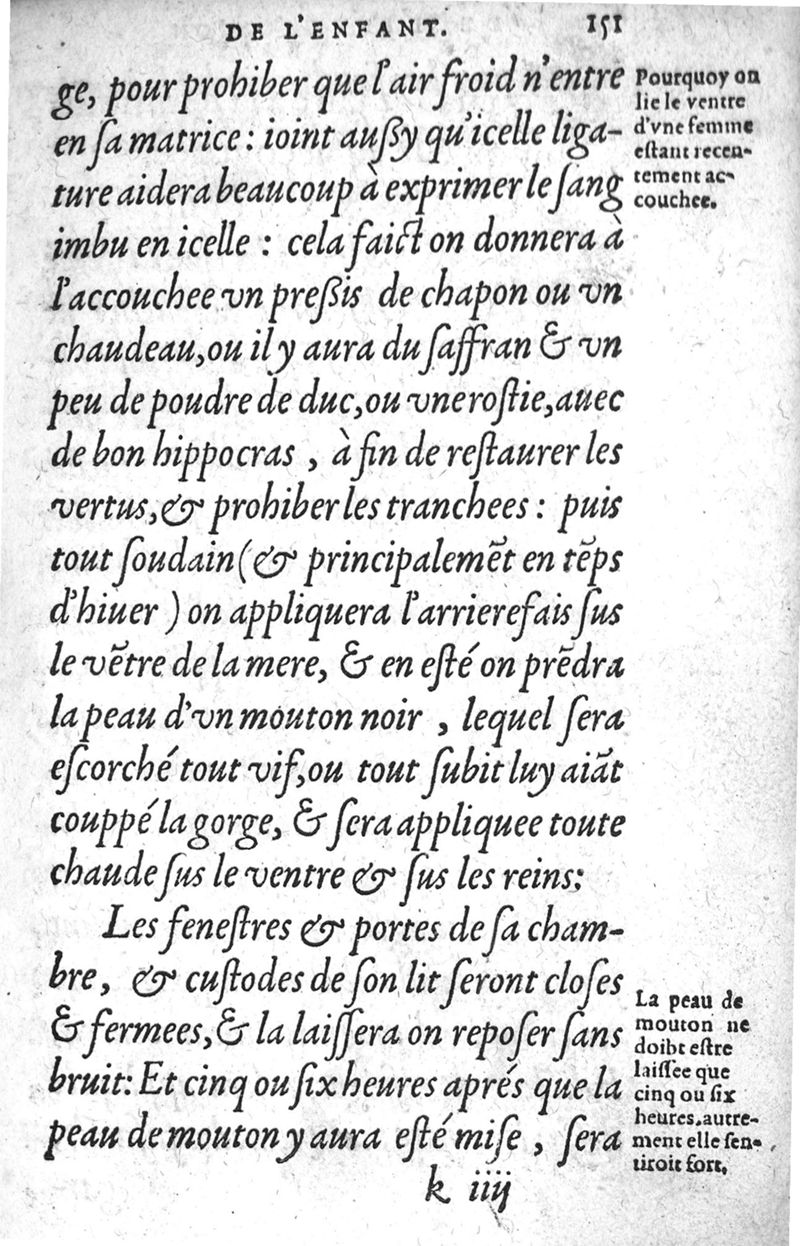 DE L'ENFANT. 151
ge, pour prohiber que l'air froid n'entre
en ſa matrice : ioint auſſy qu'icelle liga-
ture aidera beaucoup à exprimer le ſang
imbu en icelle : cela faict on donnera à
l'accouchee vn preſſis de chapon ou vn
chaudeau, ou il y aura du ſaffran & vn
peu de poudre de duc, ou vne roſtie, auec
de bon hippocras , à fin de reſtaurer les
vertus, & prohiber les tranchees : puis
tout ſoudain (& principalemẽt en tẽps
d'hiuer ) on appliquera l'arrierefais ſus
le vẽtre de la mere, & en eſté on prẽdra
la peau d'vn mouton noir , lequel ſera
eſcorché tout vif, ou tout ſubit luy aiãt
couppé la gorge, & ſera appliquee toute
chaude ſus le ventre & ſus les reins:
Les feneſtres & portes de ſa cham-
bre, & cuſtodes de ſon lit ſeront cloſes
& fermees, & la laiſſera on repoſer ſans
bruit: Et cinq ou ſix heures aprés que la
peau de mouton y aura eſté miſe , ſera
k iiij
Pourquoy on
lie le ventre
d'vne femme
eſtant recen-
tement ac-
couchee.
La peau de
mouton ne
doibt eſtre
laiſſee que
cinq ou ſix
heures, autre-
ment elle ſen-
tiroit fort.